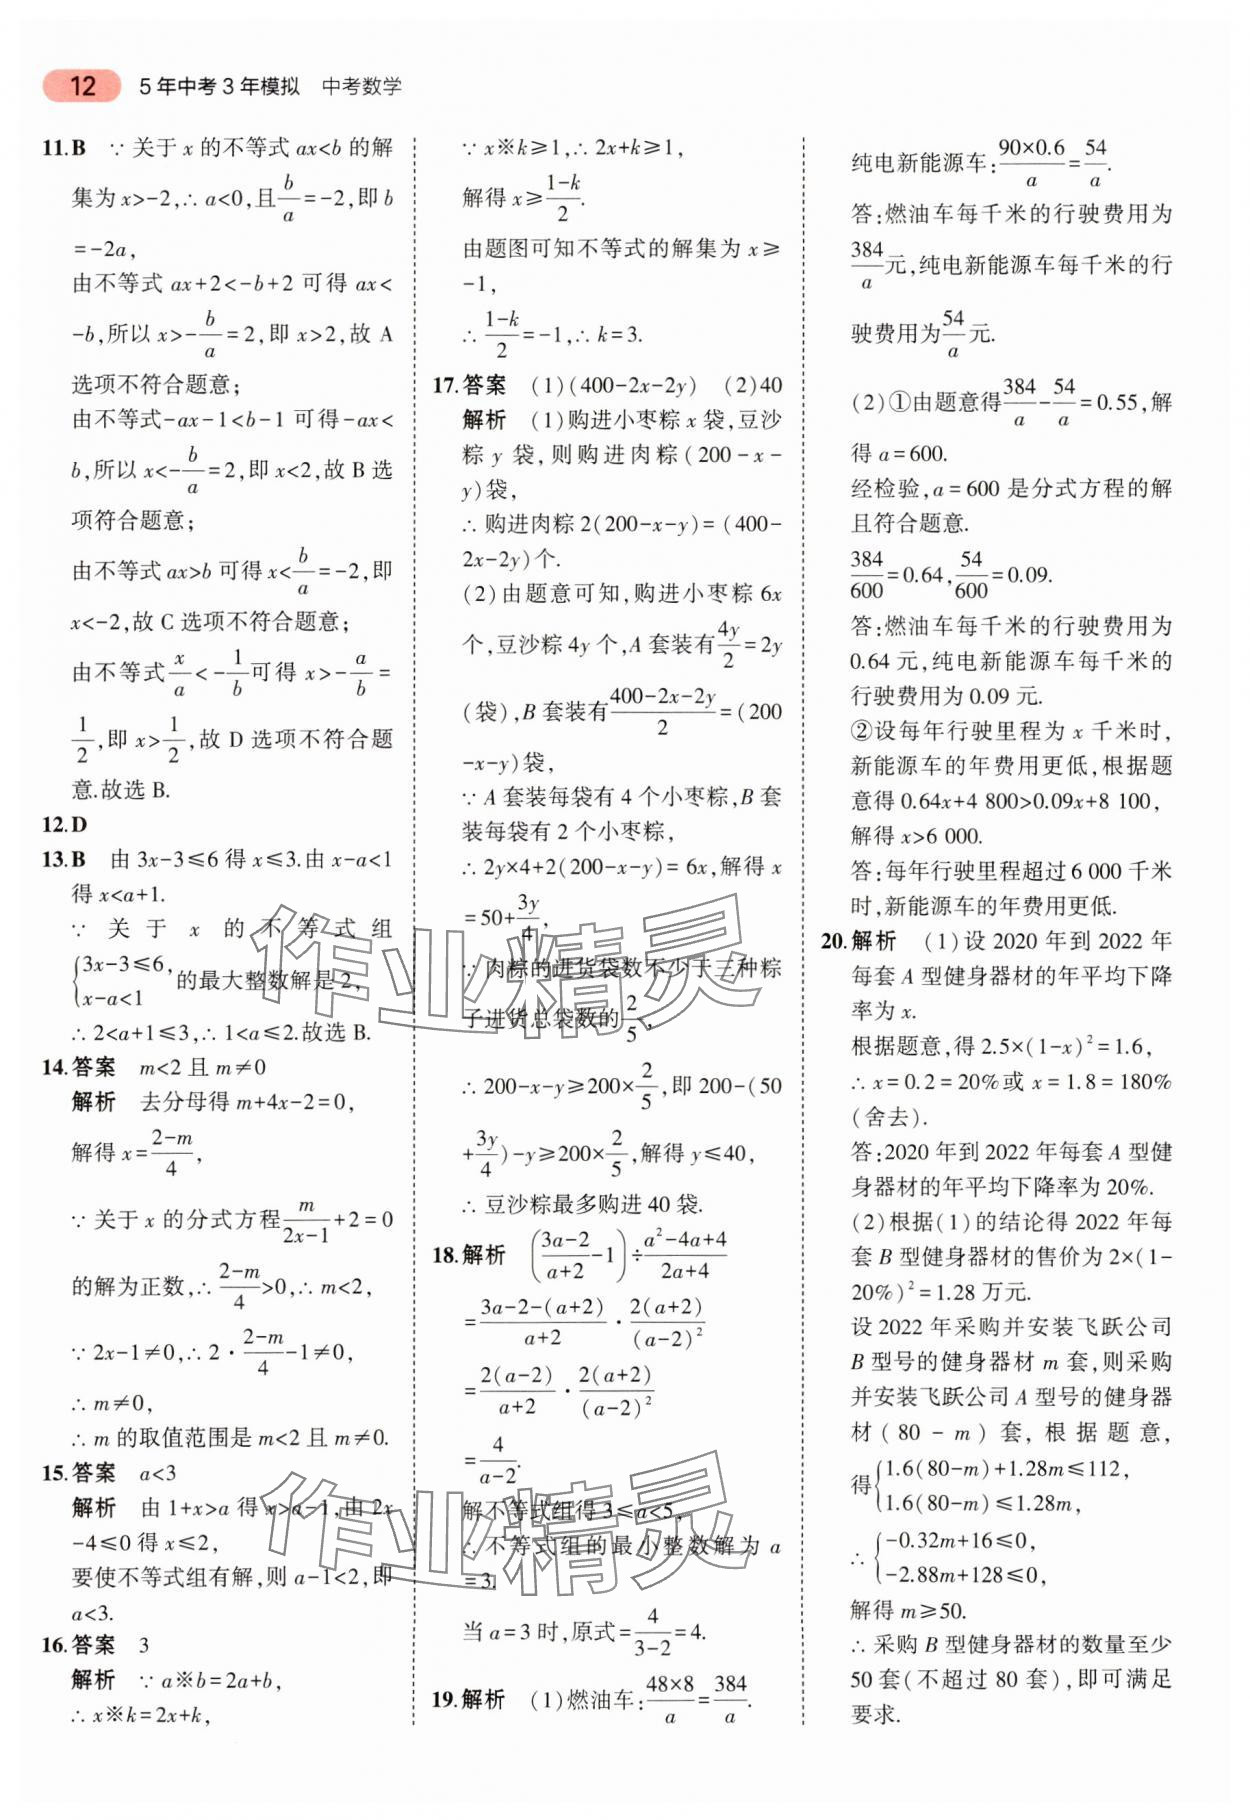 12 5年中考3年模拟 中考数学
11.B ∵关于 x 的不等式 ax<b 的解
集为 x>-2,∴a<0,且b/a=-2,即 b
=-2a,
由不等式 ax+2<-b+2 可得 ax<
-b,所以 x>-b/a=2,即 x>2,故 A
选项不符合题意;
由不等式-ax-1<b-1 可得-ax<
b,所以 x<-b/a=2,即 x<2,故 B 选
项符合题意;
由不等式 ax>b 可得 x<b/a=-2,即
x<-2,故 C 选项不符合题意;
由不等式x/a<-1/b可得 x>-a/b=
1/2,即 x>1/2,故 D 选项不符合题
意.故选 B.
12.D
13.B 由 3x-3≤6 得 x≤3.由 x-a<1
得 x<a+1.
∵关于 x 的不等式组
{3x-3≤6, x-a<1 的最大整数解是 2,
∴2<a+1≤3,∴1<a≤2.故选 B.
14.答案 m<2 且 m≠0
解析 去分母得 m+4x-2=0,
解得 x=(2-m)/4,
∵关于 x 的分式方程m/(2x-1)+2=0
的解为正数,∴(2-m)/4>0,∴m<2,
∵2x-1≠0,∴2·(2-m)/4-1≠0,
∴m≠0,
∴m 的取值范围是 m<2 且 m≠0.
15.答案 a<3
解析 由 1+x>a 得 x>a-1,由 2x
-4≤0 得 x≤2,
要使不等式组有解,则 a-1<2,即
a<3.
16.答案 3
解析 ∵a※b=2a+b,
∴x※k=2x+k,
∵x※k≥1,∴2x+k≥1,
解得 x≥(1-k)/2.
由题图可知不等式的解集为 x≥
-1,
∴(1-k)/2=-1,∴k=3.
17.答案 (1)(400-2x-2y) (2)40
解析 (1)购进小枣粽 x 袋,豆沙
粽 y 袋,则购进肉粽(200-x-
y)袋,
∴购进肉粽 2(200-x-y)=(400-
2x-2y)个.
(2)由题意可知,购进小枣粽 6x
个,豆沙粽 4y 个,A 套装有4y/2=2y
(袋),B 套装有(400-2x-2y)/2=(200
-x-y)袋,
∵A 套装每袋有 4 个小枣粽,B 套
装每袋有 2 个小枣粽,
∴2y×4+2(200-x-y)=6x,解得 x
=50+3y/4,
∵肉粽的进货袋数不少于三种粽
子进货总袋数的2/5,
∴200-x-y≥200×2/5,即 200-(50
+3y/4)-y≥200×2/5,解得 y≤40,
∴豆沙粽最多购进 40 袋.
18.解析 ((3a-2)/(a+2)-1)÷(a²-4a+4)/(2a+4)
=(3a-2-(a+2))/(a+2)·2(a+2)/(a-2)²
=2(a-2)/(a+2)·2(a+2)/(a-2)²
=4/(a-2).
解不等式组得 3≤a<5,
∴不等式组的最小整数解为 a
=3.
当 a=3 时,原式=4/(3-2)=4.
19.解析 (1)燃油车:(48×8)/a=384/a.
纯电新能源车:(90×0.6)/a=54/a.
答:燃油车每千米的行驶费用为
384/a元,纯电新能源车每千米的行
驶费用为54/a元.
(2)①由题意得384/a-54/a=0.55,解
得 a=600.
经检验,a=600 是分式方程的解
且符合题意.
384/600=0.64,54/600=0.09.
答:燃油车每千米的行驶费用为
0.64 元,纯电新能源车每千米的
行驶费用为 0.09 元.
②设每年行驶里程为 x 千米时,
新能源车的年费用更低,根据题
意得 0.64x+4 800>0.09x+8 100,
解得 x>6 000.
答:每年行驶里程超过 6 000 千米
时,新能源车的年费用更低.
20.解析 (1)设 2020 年到 2022 年
每套 A 型健身器材的年平均下降
率为 x.
根据题意,得 2.5×(1-x)²=1.6,
∴x=0.2=20%或 x=1.8=180%
(舍去).
答:2020 年到 2022 年每套 A 型健
身器材的年平均下降率为 20%.
(2)根据(1)的结论得 2022 年每
套 B 型健身器材的售价为 2×(1-
20%)²=1.28 万元.
设 2022 年采购并安装飞跃公司
B 型号的健身器材 m 套,则采购
并安装飞跃公司 A 型号的健身器
材(80-m)套,根据题意,
得{1.6(80-m)+1.28m≤112, 1.6(80-m)≤1.28m,
∴{-0.32m+16≤0, -2.88m+128≤0,
解得 m≥50.
∴采购 B 型健身器材的数量至少
50 套(不超过 80 套),即可满足
要求.
作业精灵
作业精灵